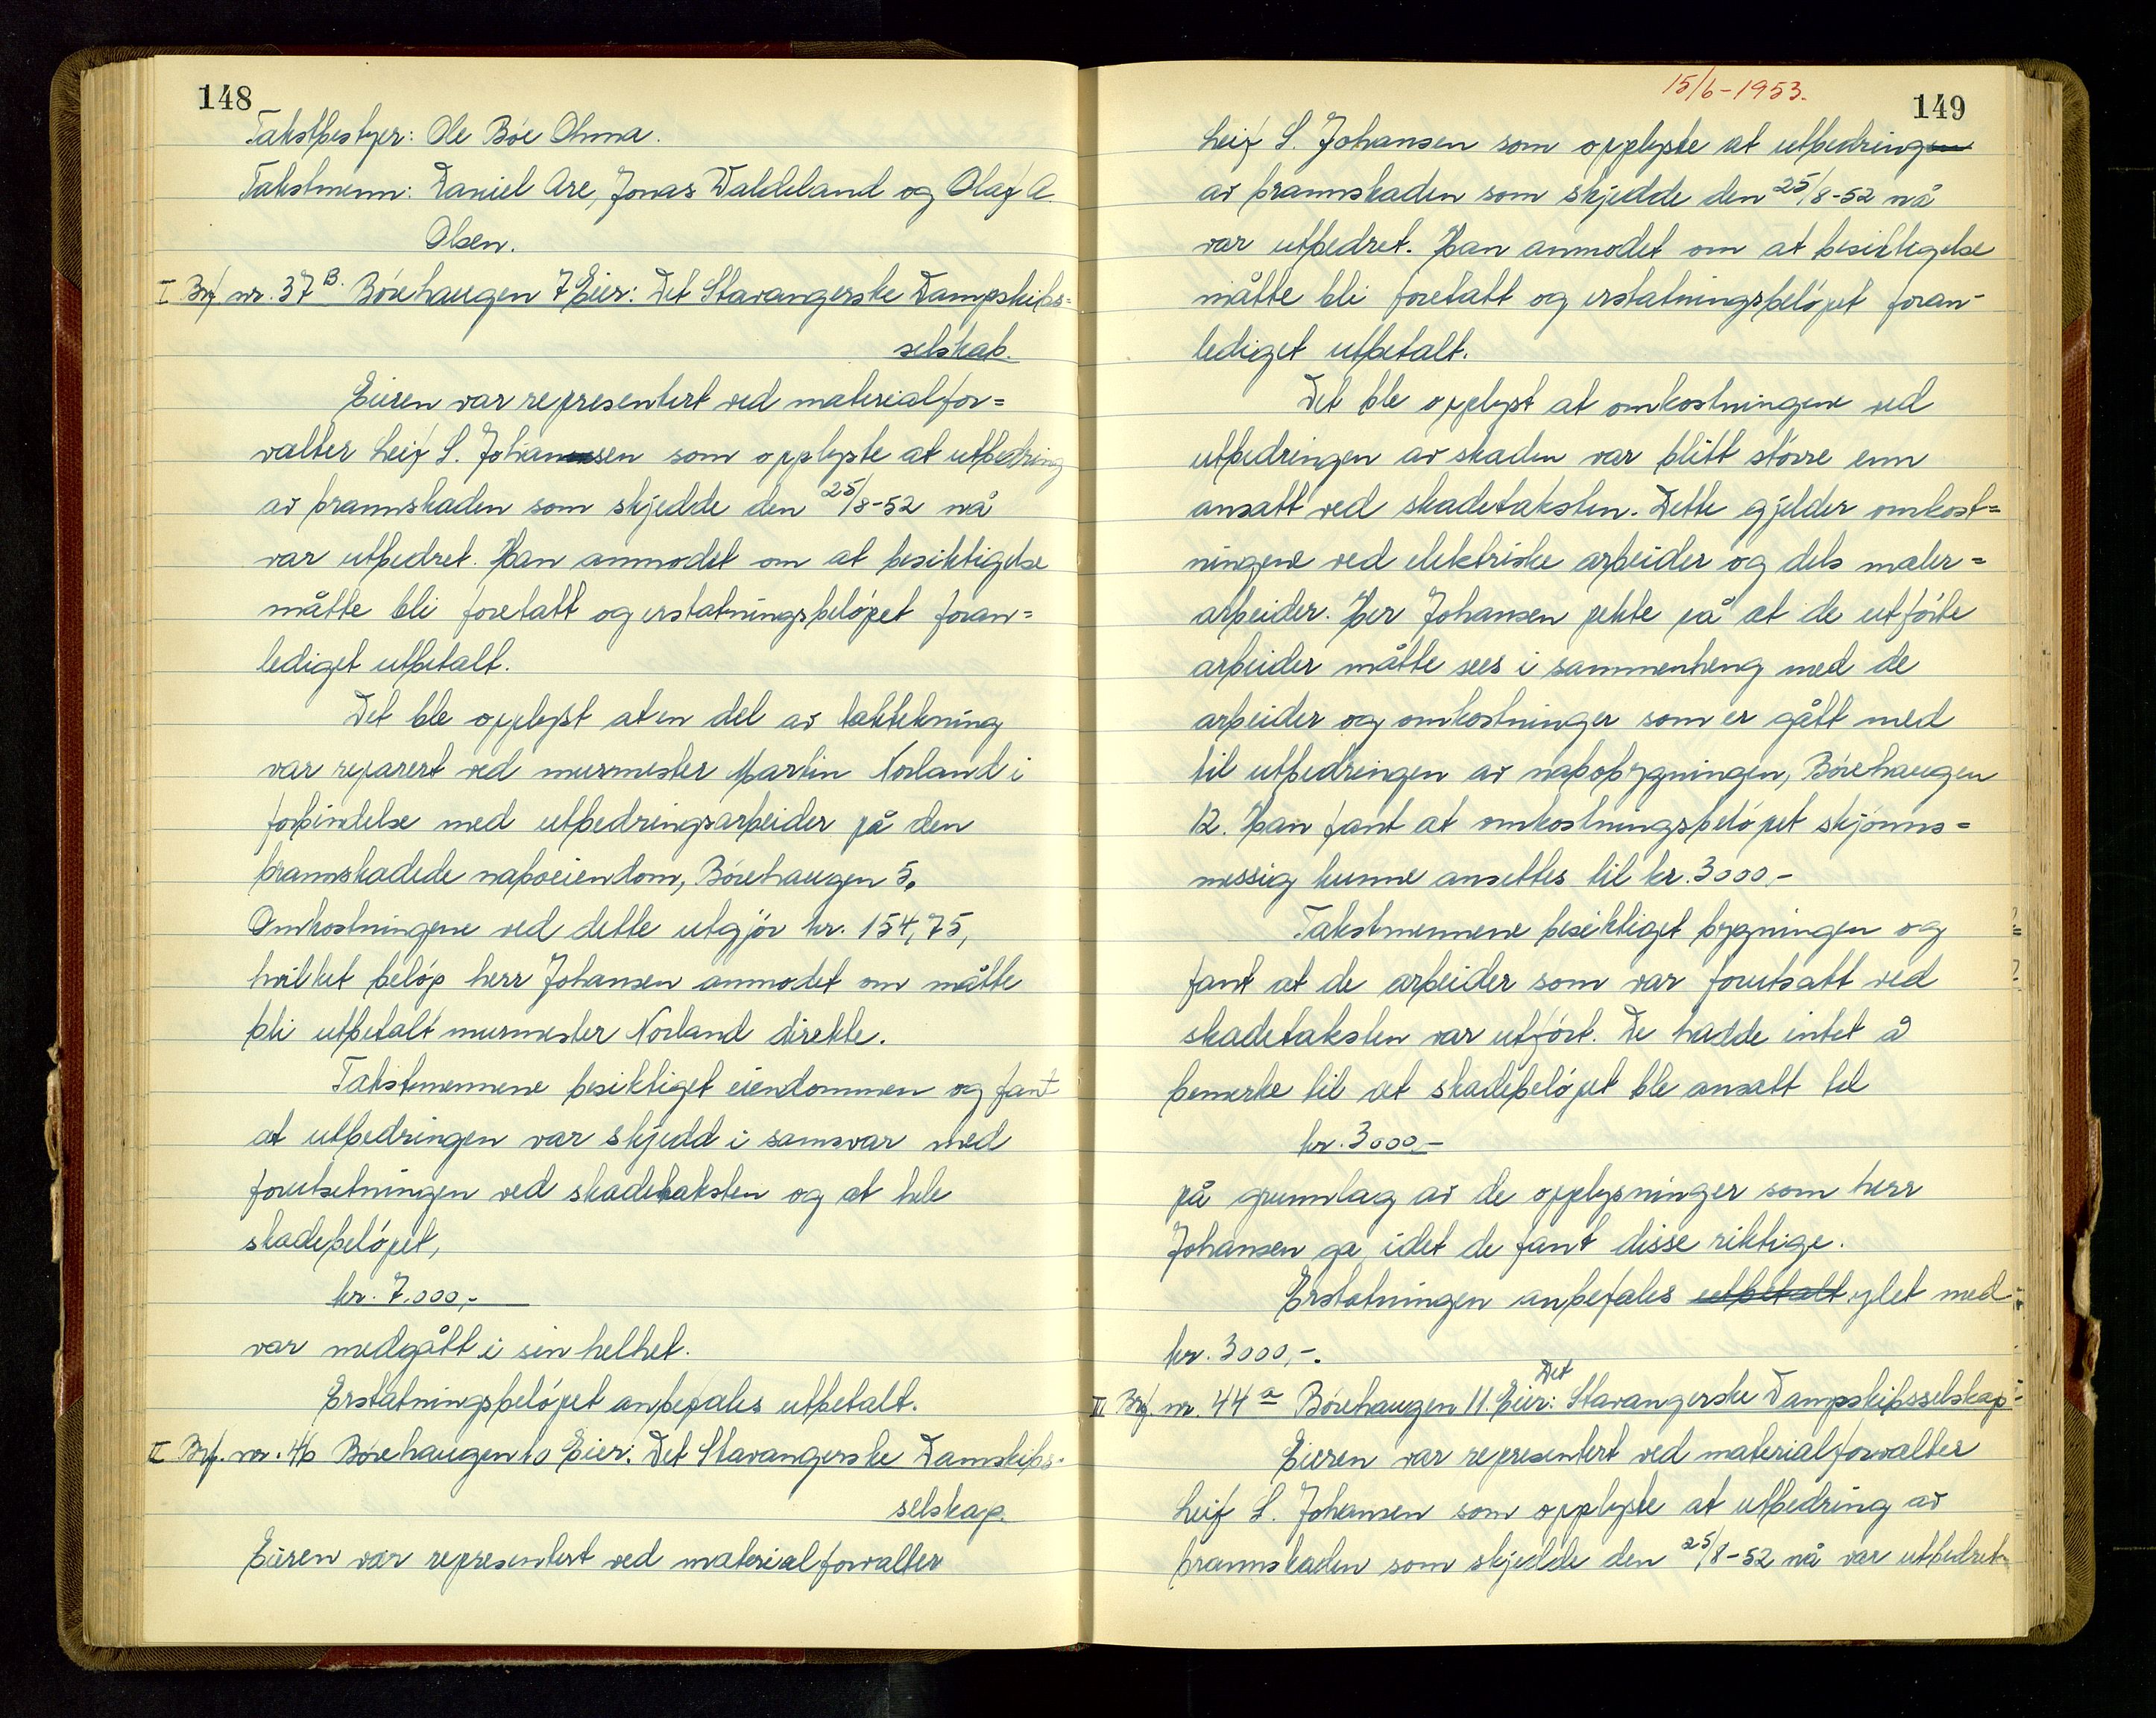 148
Takstbestyer: Ole Bóe Ohma.
Takstmenn: Daniel Are, Jonas Waldeland og Olaf A.
Olsen.
I Brf nr. 37 B. Bórehaugen 7 Eier: Det Stavangerske Dampskibs=
selskab.
Eieren var representert ved materialfor=
valter Leif S. Johansen som opplyste at utbedring
av brannskaden som skjedde den 25/8-52 nå
var utbedret. Han anmodet om at besiktigelse
måtte bli foretatt og erstatningsbelópet foran=
lediget utbetalt.
Det ble opplyst at en del av taktekning
var reparert ved murmester Martin Norland i
forbindelse med utbedringsarbeider på den
brannskadede naboeiendom, Bórehaugen 5.
Omkostningene ved dette utgjór kr. 154,75,
hvilket belóp herr Johansen anmodet om måtte
bli utbetalt murmester Norland direkte.
Takstmennene besiktiget eiendommen og fant
at utbedringen var skjedd i samsvar med
forutsetningen ved skadetaksten og at hele
skadebelópet,
kr. 7.000,-
var medgått i sin helhet.
Erstatningsbelópet anbefales utbetalt.
II Brf. nr. 46 Bórehaugen 10 Eier: Det Stavangerske Damskibs-
selskap.
Eieren var representert ved materialforvalter
15/6-1953.
149
Leif S. Johansen som opplyste at utbedringen
av brannskaden som skjedde den 25/8-52 nå
var utbedret. Han anmodet om at besiktigelse
måtte bli foretatt og erstatningsbelópet foran-
lediget utbetalt.
Det ble opplyst at omkostningene ved
utbedringen av skaden var blitt stórre enn
ansatt ved skadetaksten. Dette gjelder omkost=
ningene ved elektriske arbeider og dels maler=
arbeider. Her Johansen pekte på at de utfórte
arbeider måtte sees i sammenheng med de
arbeider og omkostninger som er gått med
til utbedringen av nabobygningen, Bórehaugen
12. Han fant at omkostningsbelópet skjónns=
messig kunne ansettes til kr. 3000,-
Takstmennene besiktiget bygningen og
fant at de arbeider som var forutsatt ved
skadetaksten var utfórt. De hadde intet å
bemerke til at skadebelópet ble ansatt til
kr. 3000,-
på grunnlag av de opplysninger som herr
Johansen ga, idet de fant disse riktige.
Erstatningen anbefales utbetalt ydet med
kr. 3000,-.
III Brf. nr. 44 a Bórehaugen 11. Eier: Det Stavangerske Dampskibsselskap.
Eieren var representert ved materialforvalter
Leif S. Johansen som opplyste at utbedring av
brannskaden som skjedde den 25/8-52 nå var utbedret.